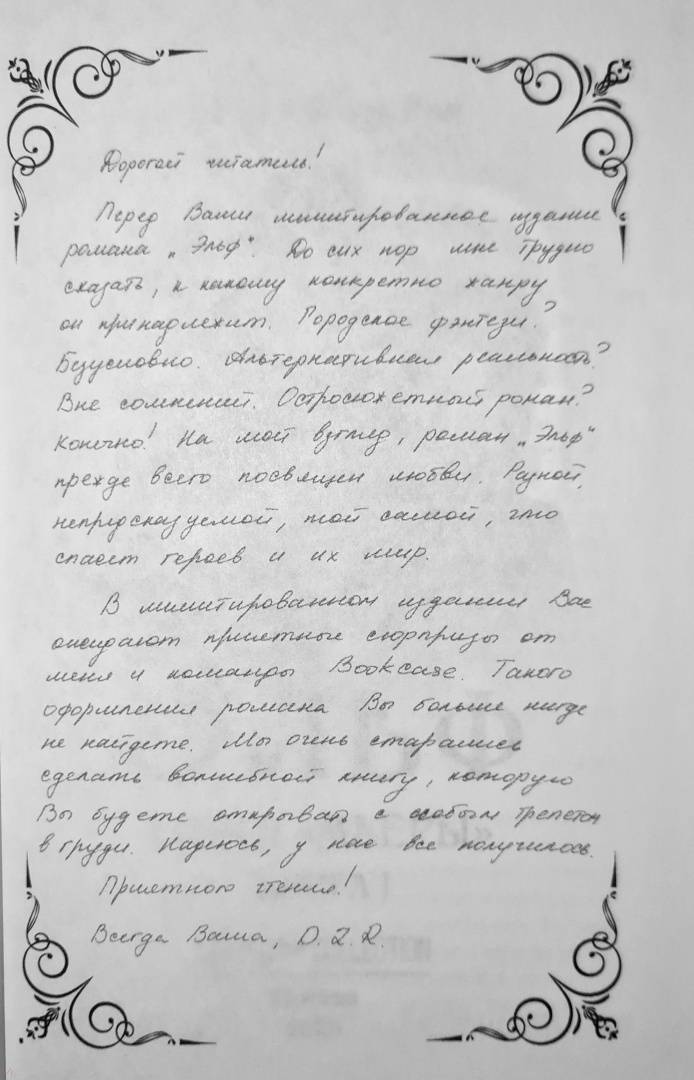 Дорогой читатель!
Перед Вами лимитированное издание
романа „Эльф“. До сих пор мне трудно
сказать, к какому конкретно жанру
он принадлежит. Городское фэнтези?
Безусловно. Альтернативная реальность?
Вне сомнений. Остросюжетный роман?
Конечно! На мой взгляд, роман „Эльф“
прежде всего посвящен любви. Разной,
непредсказуемой, той самой, что
спасет героев и их мир.
В лимитированном издании Вас
ожидают приятные сюрпризы от
меня и команды Bookcase. Такого
оформления романа Вы больше нигде
не найдете. Мы очень старались
сделать волшебной книгу, которую
Вы будете открывать с особым трепетом
в груди. Надеюсь, у нас все получилось.
Приятного чтения!
Всегда Ваша,